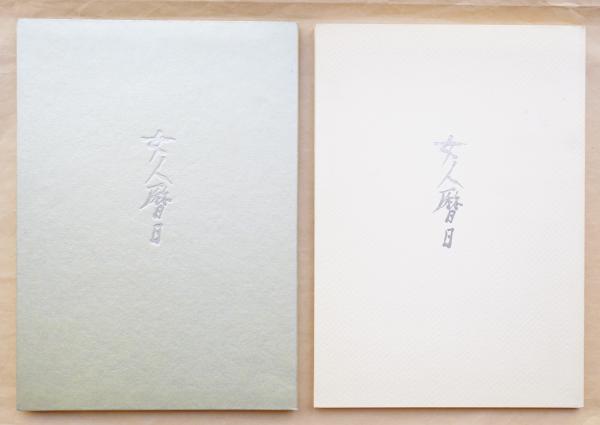 女人暦日
女人暦日